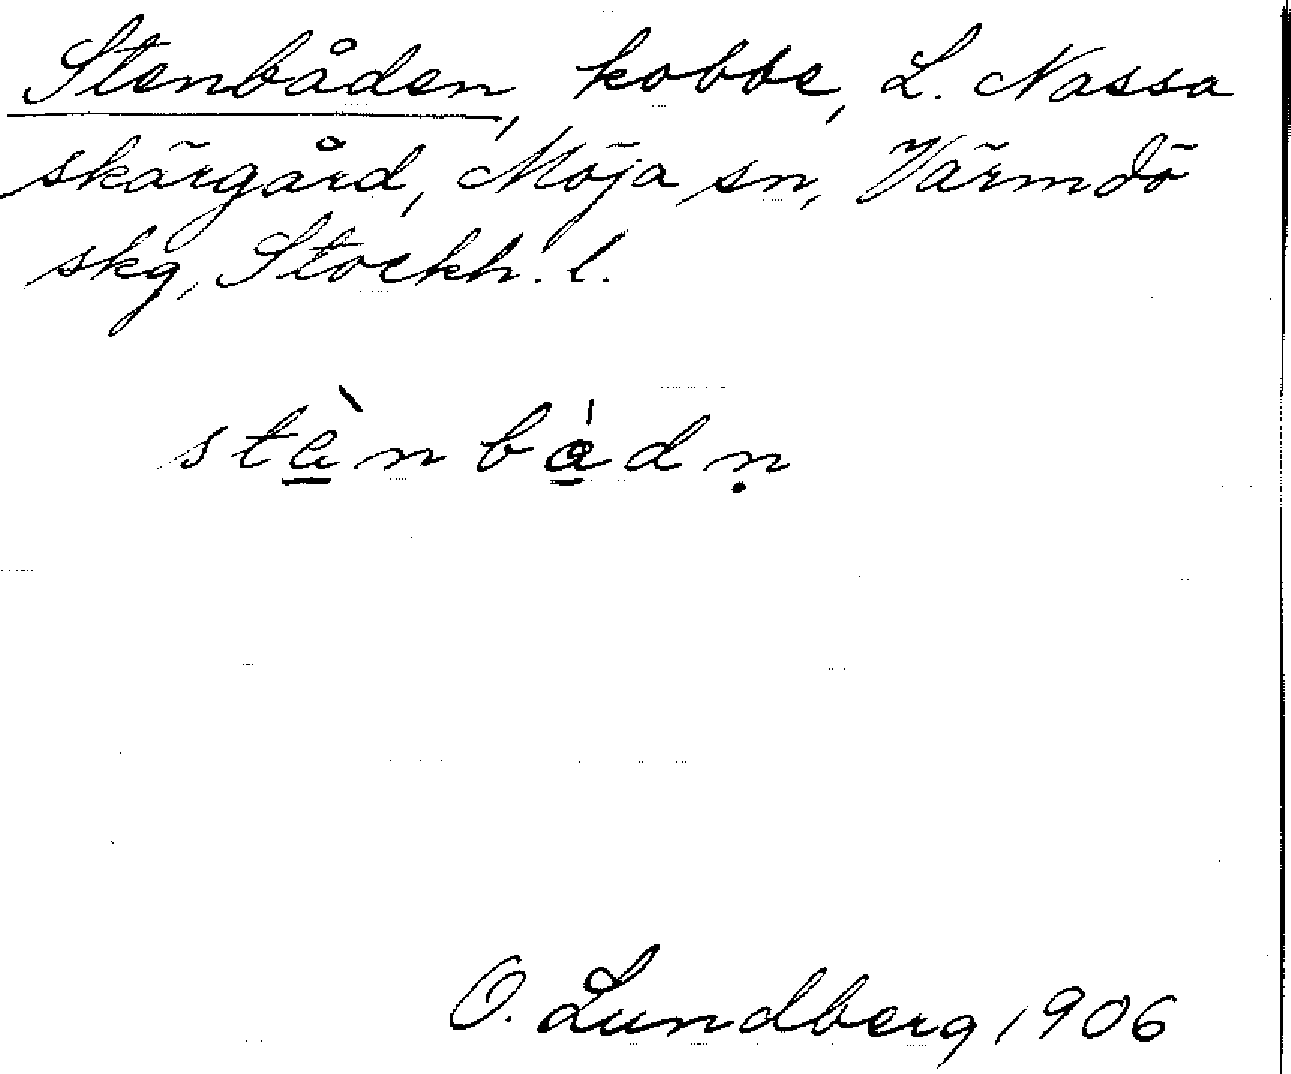 Stenbåden, kobbe, L. Nassa
skärgård, Möja sn, Värmdö
skg, Stockh. l.
stè̱nbà̱dṇ
O. Lundberg 1906